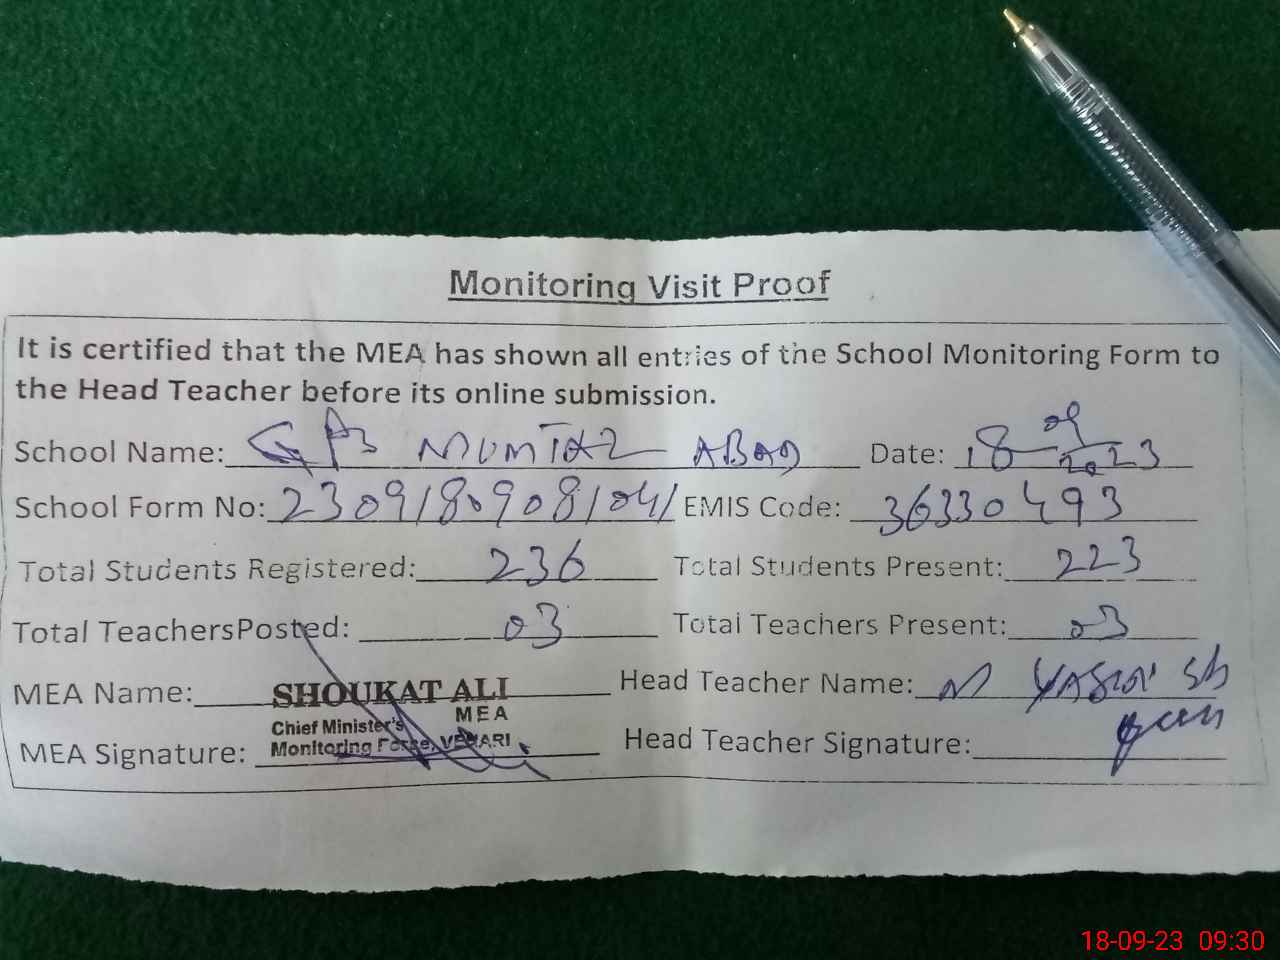 Monitoring Visit Proof
It is certified that the MEA has shown all entries of the School Monitoring Form to
the Head Teacher before its online submission.
School Name: GPS MUMTAZ ABAD Date: 18 09 2023
School Form No: 23091809081041 EMIS Code: 36330493
Total Students Registered: 236 Total Students Present: 223
Total TeachersPosted: 03 Total Teachers Present: 03
MEA Name: SHOUKAT ALI Head Teacher Name: M
MEA
Chief Minister's
Monitoring Force, VEHARI
MEA Signature: Head Teacher Signature:
18-09-23 09:30